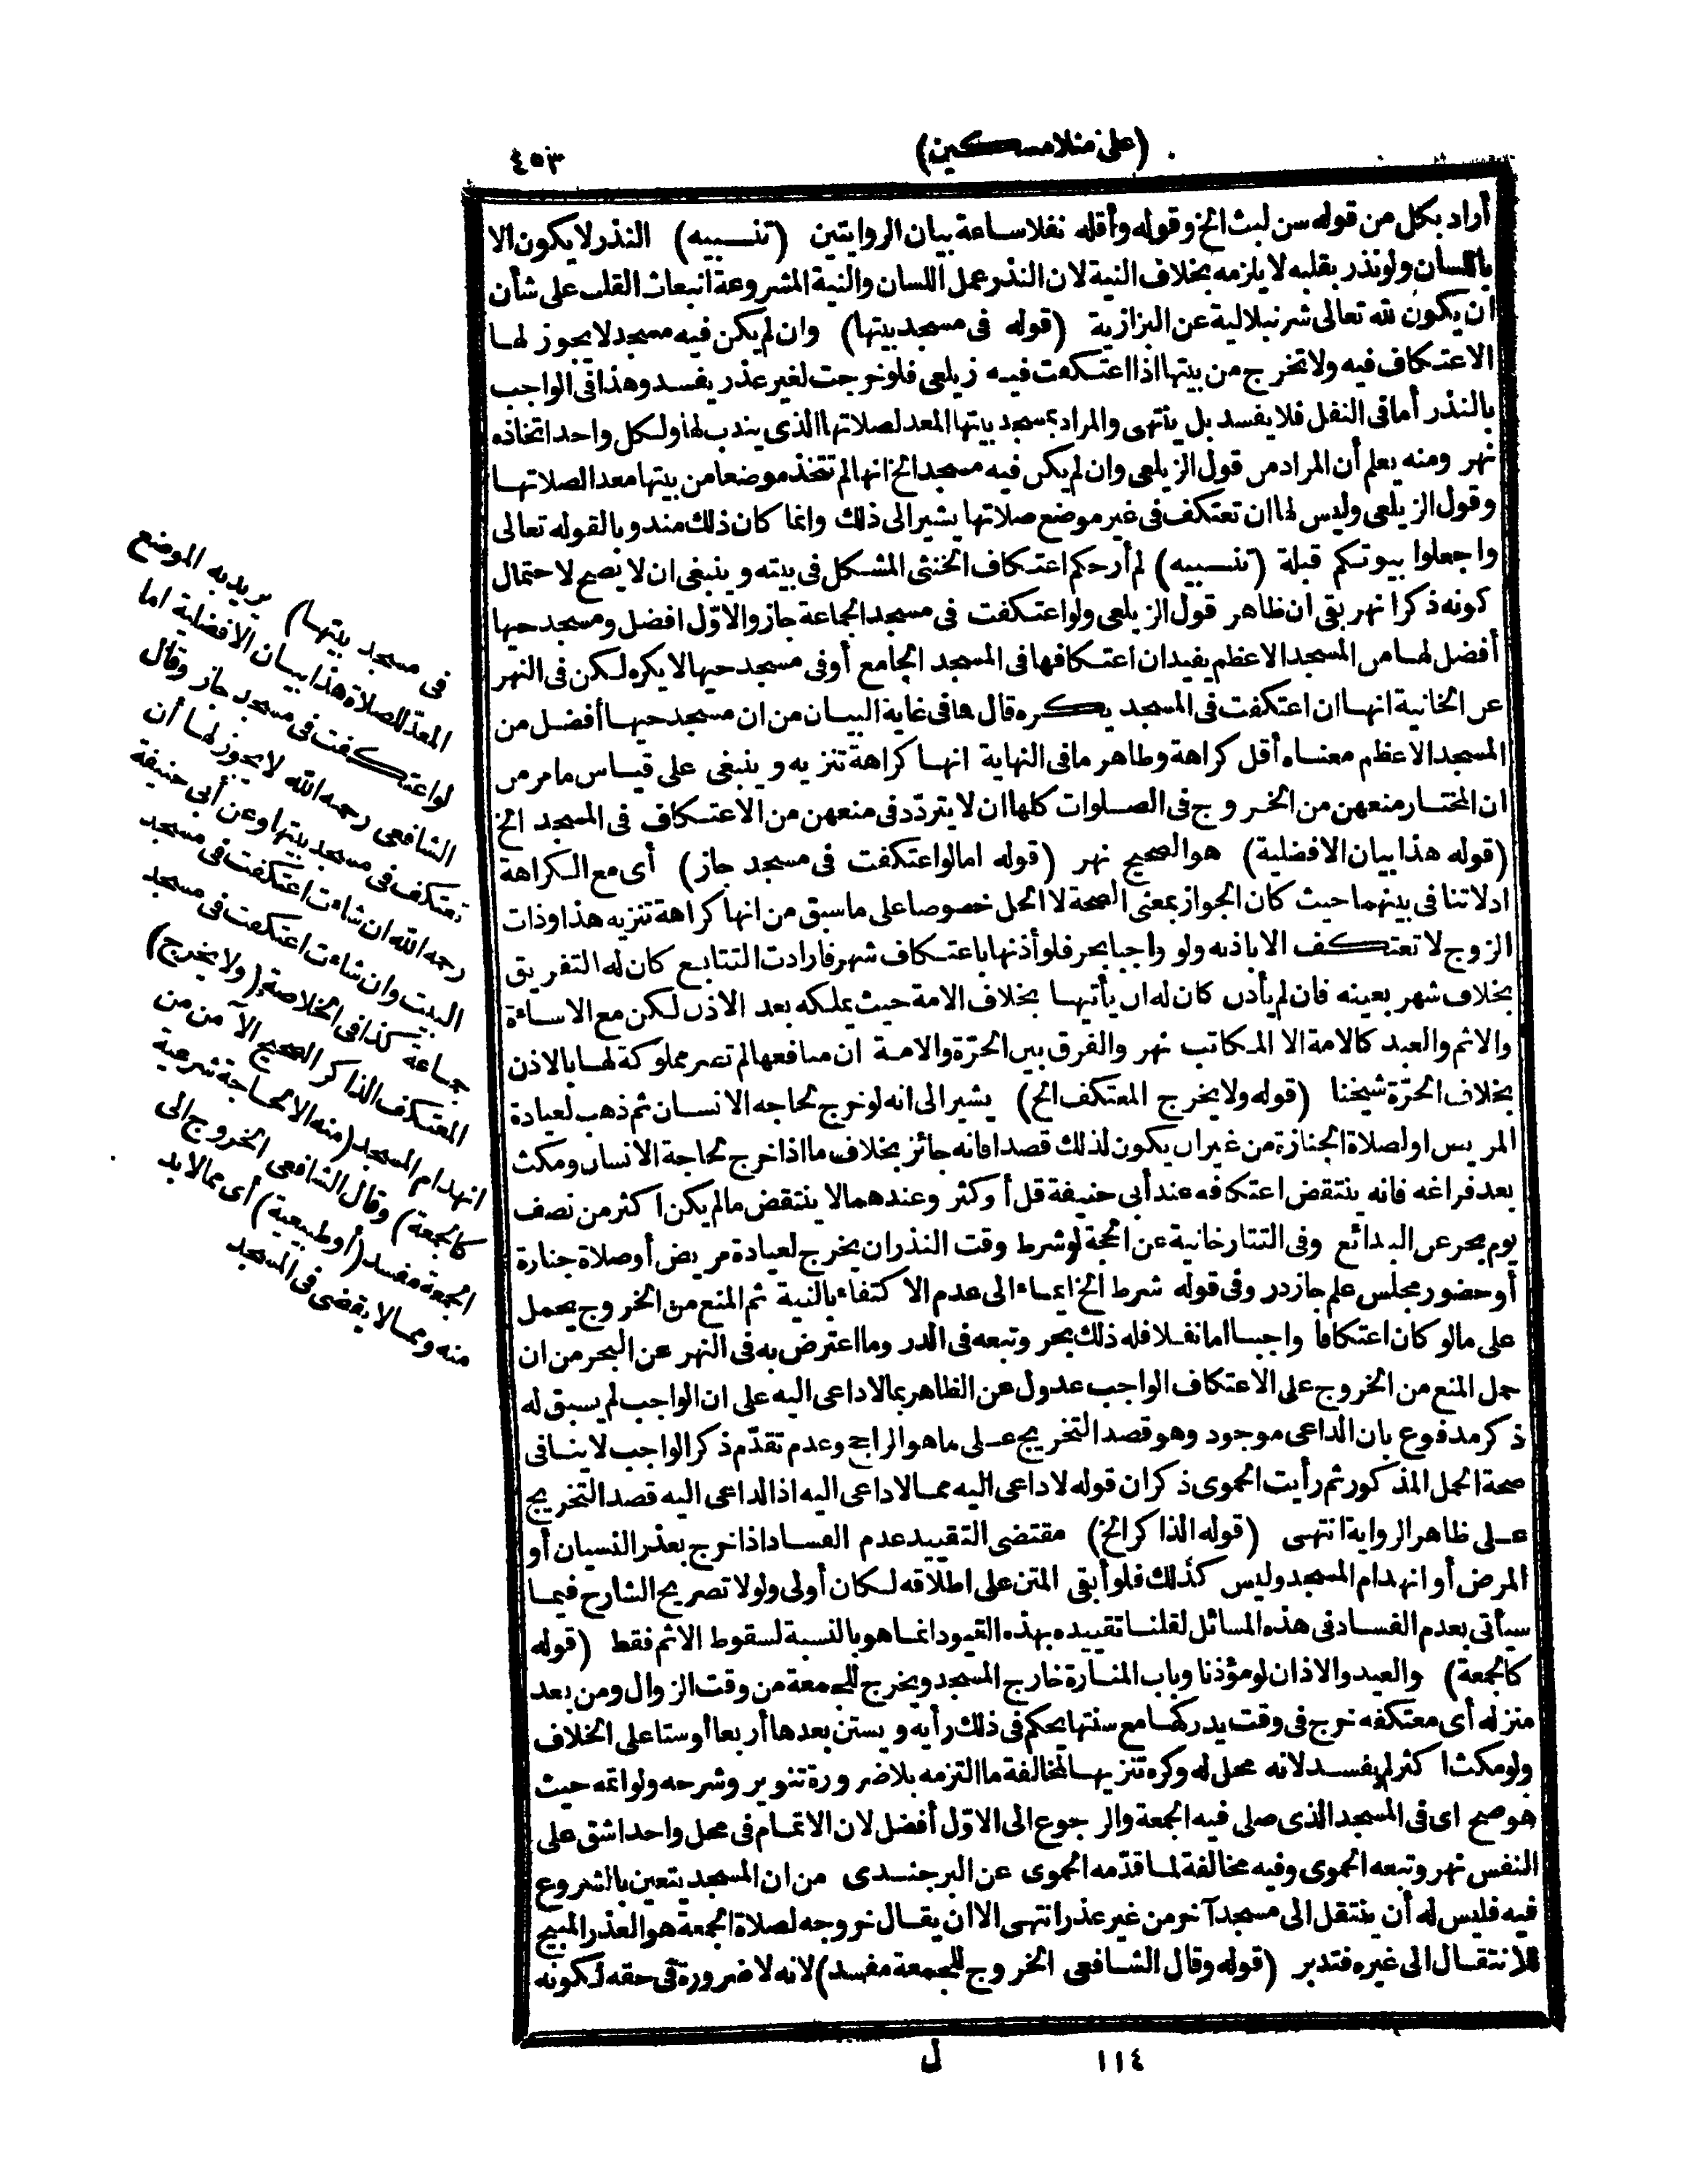 (على منلا مسكين)
٤٥٣
أراد بكل من قوله سن لبث الخ وقوله وأقله نفلا ساعة بيان الروايتين (تنبيه) النذر لا يكون الا
باللسان ولو نذر بقلبه لا يلزمه بخلاف النية لان النذر عمل اللسان والنية المشروعة انبعاث القلب على شأن
ان يكون لله تعالى شرنبلالية عن البزازية (قوله فى مسجد بيتها) وان لم يكن فيه مسجد لا يجوز لها
الاعتكاف فيه ولا تخرج من بيتها اذا اعتكفت فيه زيلعى فلو خرجت لغير عذر يفسد وهذا فى الواجب
بالنذر أما فى النفل فلا يفسد بل ينتهى والمراد بمسجد بيتها المعد لصلاتها الذى يندب لها ولكل واحد اتخاذه
نهر ومنه يعلم أن المراد من قول الزيلعى وان لم يكن فيه مسجد الخ انها لم تتخذ موضعا من بيتها معدا لصلاتها
وقول الزيلعى وليس لها ان تعتكف فى غير موضع صلاتها يشير الى ذلك وانما كان ذلك مندوبا لقوله تعالى
واجعلوا بيوتكم قبلة (تنبيه) لم أر حكم اعتكاف الخنثى المشكل فى بيته وينبغى ان لا يصح لاحتمال
كونه ذكرا نهر بقى ان ظاهر قول الزيلعى ولو اعتكفت فى مسجد الجماعة جاز والاول افضل ومسجد حيها
أفضل لها من المسجد الاعظم يفيد ان اعتكافها فى المسجد الجامع أو فى مسجد حيها لا يكره لكن فى النهر
عن الخانية انها ان اعتكفت فى المسجد يكره قال فما فى غاية البيان من ان مسجد حيها أفضل من
المسجد الاعظم معناه أقل كراهة وظاهر ما فى النهاية انها كراهة تنزيه وينبغى على قياس ما مر من
ان المختار منعهن من الخروج فى الصلوات كلها ان لا يتردد فى منعهن من الاعتكاف فى المسجد الخ
(قوله هذا بيان الافضلية) هو الصحيح نهر (قوله اما لو اعتكفت فى مسجد جاز) أى مع الكراهة
اذ لا تنافى بينهما حيث كان الجواز بمعنى الصحة لا الحل خصوصا على ما سبق من انها كراهة تنزيه هذا وذات
الزوج لا تعتكف الا باذنه ولو واجبا بحر فلو أذنها باعتكاف شهر فارادت التتابع كان له التفريق
بخلاف شهر بعينه فان لم يأذن كان له ان يأتيها بخلاف الامة حيث يملكه بعد الاذن لكن مع الاساءة
والاثم والعبد كالامة الا المكاتب نهر والفرق بين الحرّة والامة ان منافعها لم تصر مملوكة لها بالاذن
بخلاف الحرّة شيخنا (قوله ولا يخرج المعتكف الخ) يشير الى انه لو خرج لحاجة الانسان ثم ذهب لعيادة
المريض او لصلاة الجنازة من غير ان يكون لذلك قصدا فانه جائز بخلاف ما اذا خرج لحاجة الانسان ومكث
بعد فراغه فانه ينتقض اعتكافه عند أبى حنيفة قل أو كثر وعندهما لا ينتقض ما لم يكن اكثر من نصف
يوم بحر عن البدائع وفى التتارخانية عن الحجة لو شرط وقت النذر ان يخرج لعيادة مريض أو صلاة جنازة
أو حضور مجلس علم جاز در وفى قوله شرط الخ ايماء الى عدم الاكتفاء بالنية ثم المنع من الخروج يحمل
على ما لو كان اعتكافا واجبا اما نفلا فله ذلك بحر وتبعه فى الدر وما اعترض به فى النهر عن البحر من ان
حمل المنع من الخروج على الاعتكاف الواجب عدول عن الظاهر بما لا داعى اليه على ان الواجب لم يسبق له
ذكر مدفوع بان الداعى موجود وهو قصد التخريج على ما هو الراجح وعدم تقدّم ذكر الواجب لا ينافى
صحة الحمل المذكور ثم رأيت الحموى ذكر ان قوله لا داعى اليه مما لا داعى اليه اذ الداعى اليه قصد التخريج
على ظاهر الرواية انتهى (قوله الذاكر الخ) مقتضى التقييد عدم الفساد اذا خرج بعذر النسيان أو
المرض أو انهدام المسجد وليس كذلك فلو أبقى المتن على اطلاقه لكان أولى ولولا تصريح الشارح فيما
سيأتى بعدم الفساد فى هذه المسائل لقلنا تقييده بهذه القيود انما هو بالنسبة لسقوط الاثم فقط (قوله
كالجمعة) والعيد والاذان لو مؤذنا وباب المنارة خارج المسجد ويخرج للجمعة من وقت الزوال ومن بعد
منزله أى معتكفه خرج فى وقت يدركها مع سنتها يحكم فى ذلك رأيه ويستن بعدها أربعا أو ستا على الخلاف
ولو مكث اكثر لم يفسد لانه محل له وكره تنزيها لمخالفة ما التزمه بلا ضرورة تنوير وشرحه ولو اتمه حيث
هو صح اى فى المسجد الذى صلى فيه الجمعة والرجوع الى الاول أفضل لان الاتمام فى محل واحد اشق على
النفس نهر وتبعه الحموى وفيه مخالفة لما قدّمه الحموى عن البرجندى من ان المسجد يتعين بالشروع
فيه فليس له أن ينتقل الى مسجد آخر من غير عذر انتهى الا ان يقال خروجه لصلاة الجمعة هو العذر المبيح
للانتقال الى غيره فتدبر (قوله وقال الشافعى الخروج للجمعة مفسد) لانه لا ضرورة فى حقه لكونه
فى مسجد بيتها) يريد به الموضع
المعدّ للصلاة هذا بيان الافضلية اما
لو اعتكفت فى مسجد جاز وقال
الشافعى رحمه الله لا يجوز لها أن
تعتكف فى مسجد بيتها وعن أبى حنيفة
رحمه الله ان شاءت اعتكفت فى مسجد
البيت وان شاءت اعتكفت فى مسجد
جماعة كذا فى الخلاصة (ولا يخرج)
المعتكف الذاكر الصحيح الآمن من
انهدام المسجد (منه الا لحاجة شرعية
كالجمعة) وقال الشافعى الخروج الى
الجمعة مفسد (أو طبيعية) أى مما لا بد
منه ومما لا يقضى فى المسجد
١١٤
ل